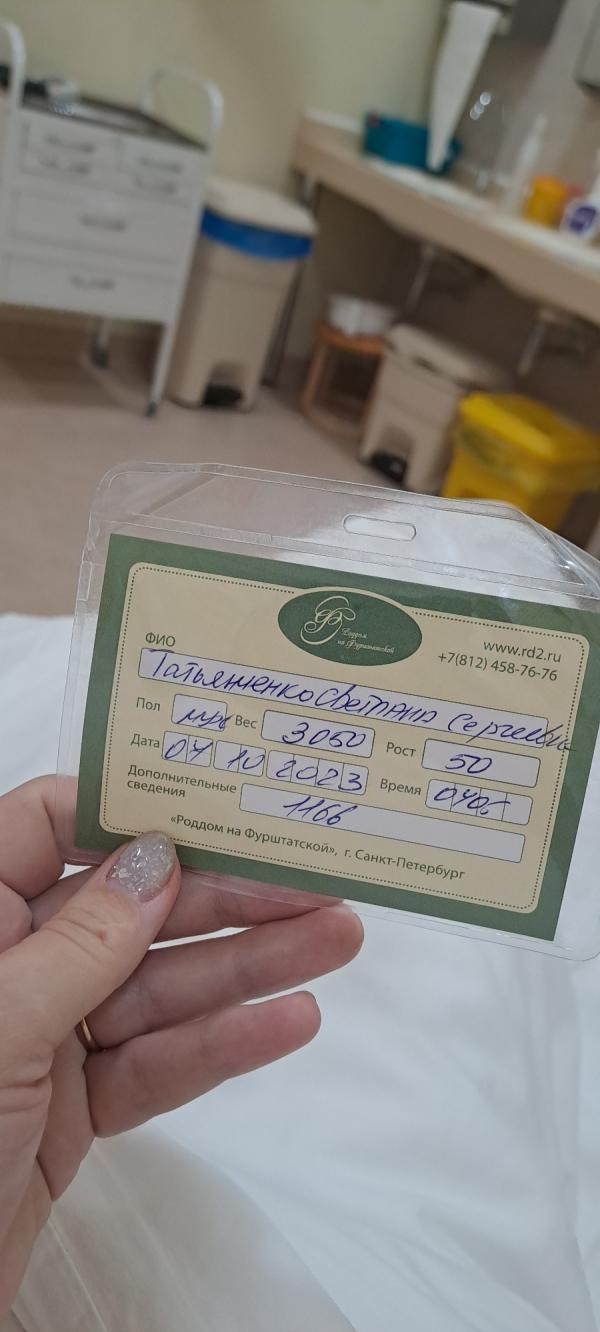 Роддом
на Фурштатской
www.rd2.ru
+7(812) 458-76-76
ФИО
Татьянченко Светлана Сергеевна
Пол муж Вес 3060 Рост 50
Дата 07 10 2023 Время 0405
Дополнительные сведения 1166
«Роддом на Фурштатской», г. Санкт-Петербург